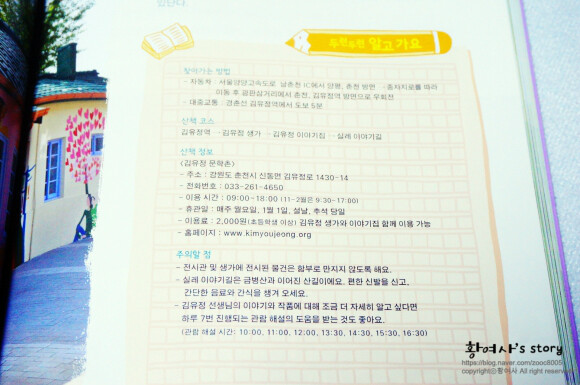 있난다.
두런두런 알고 가요
찾아가는 방법
- 자동차 : 서울양양고속도로 남춘천 IC에서 양평, 춘천 방면 → 종자치로를 따라
이동 후 광판삼거리에서 춘천, 김유정역 방면으로 우회전
- 대중교통 : 경춘선 김유정역에서 도보 5분
산책 코스
김유정역 → 김유정 생가 → 김유정 이야기집 → 실레 이야기길
산책 정보
(김유정 문학촌)
- 주소 : 강원도 춘천시 신동면 김유정로 1430-14
- 전화번호 : 033-261-4650
- 이용 시간 : 09:00~18:00 (11~2월은 9:30~17:00)
- 휴관일 : 매주 월요일, 1월 1일, 설날, 추석 당일
- 이용료 : 2,000원(초등학생 이상) 김유정 생가와 이야기집 함께 이용 가능
- 홈페이지 : www.kimyoujeong.org
주의할 점
- 전시관 및 생가에 전시된 물건은 함부로 만지지 않도록 해요.
- 실레 이야기길은 금병산과 이어진 산길이에요. 편한 신발을 신고,
간단한 음료와 간식을 챙겨 오세요.
- 김유정 선생님의 이야기와 작품에 대해 조금 더 자세히 알고 싶다면
하루 7번 진행되는 관람 해설의 도움을 받는 것도 좋아요.
(관람 해설 시간: 10:00, 11:00, 12:00, 13:30, 14:30, 15:30, 16:30)
황여사's story
https://blog.naver.com/zoocll8005
copyrightⓒ황여사 All right reserved